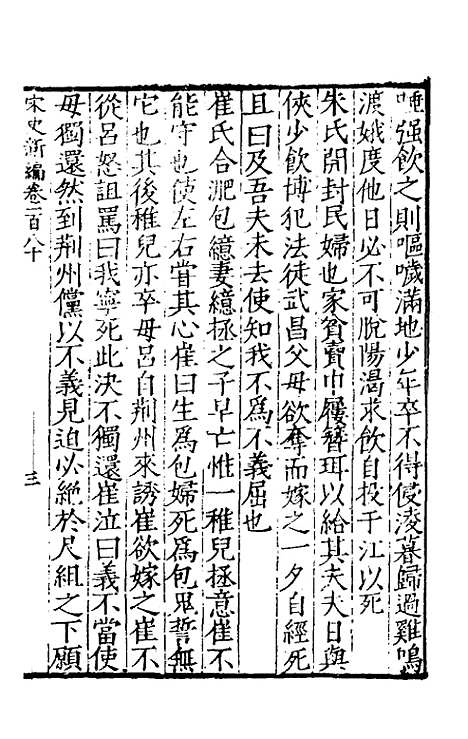 唾强飲之則嘔噦滿地少年卒不得侵淩暮歸過雞鳴
渡娥度他日必不可脫陽渴求飲自投于江以死
朱氏開封民婦也家貧賣巾屨簪珥以給其夫夫日與
俠少飲博犯法徒武昌父母欲奪而嫁之一夕自經死
且曰及吾夫未去使知我不爲不義屈也
崔氏合淝包繶妻繶拯之子早亡惟一稚兒拯意崔不
能守也使左右嘗其心崔曰生爲包婦死爲包鬼誓無
它也其後稚兒亦卒母呂自荆州來誘崔欲嫁之崔不
從呂怒詛罵曰我寧死此決不獨還崔泣曰義不當使
母獨還然到荆州儻以不義見迫必絕於尺組之下願
宋史新編卷一百八十
三